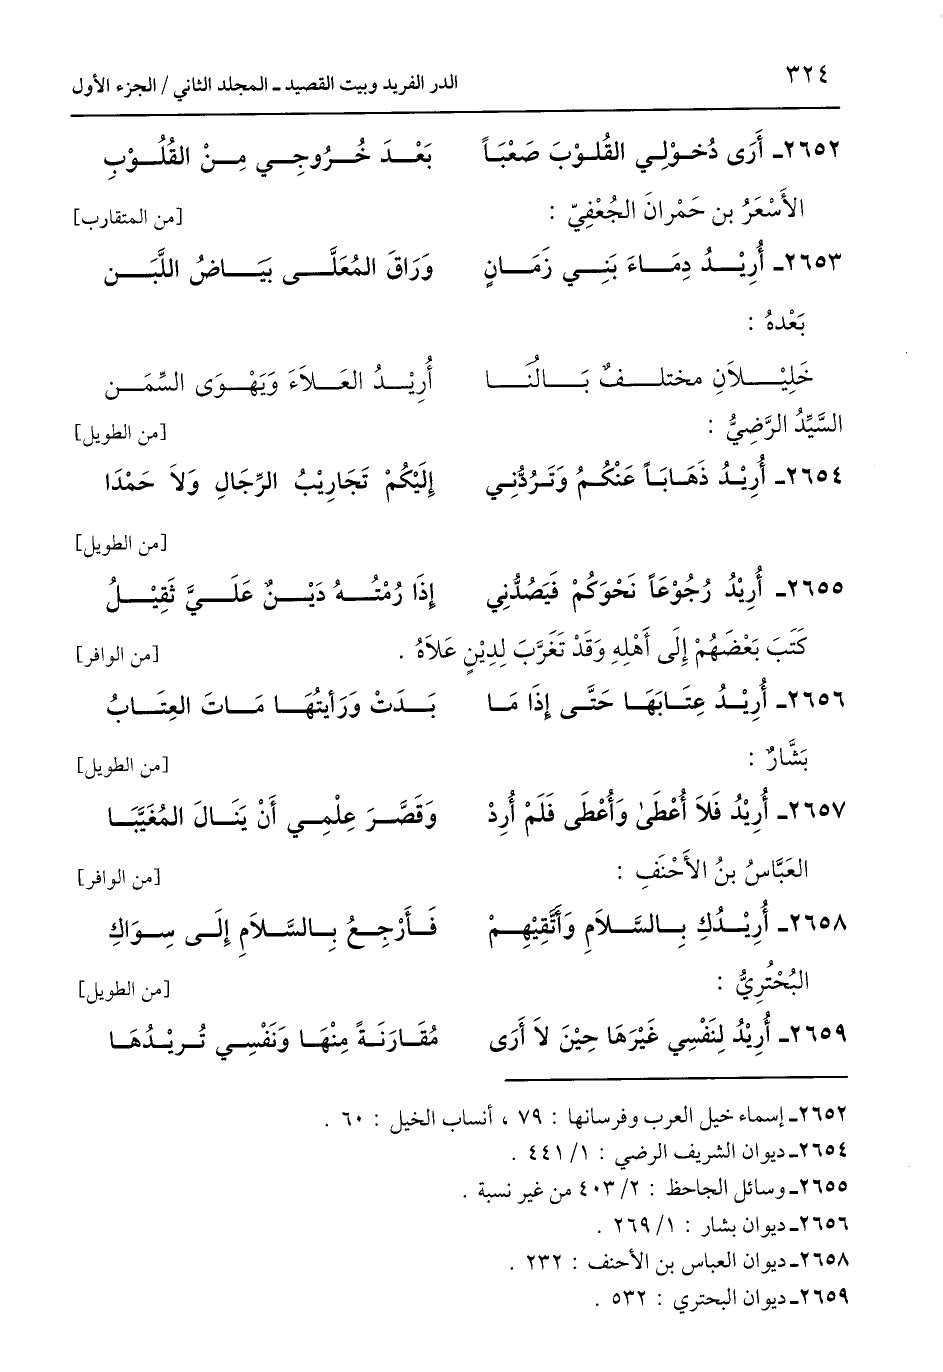 ٣٢٤ الدر الفريد وبيت القصيد ـ المجلد الثاني / الجزء الأول
٢٦٥٢ـ أَرَى دُخـوْلِـي القُلـوْبَ صَعْبَـاً بَعْـدَ خُـرُوجـي مِـنْ القُلُـوْبِ
الأَسْعَرُ بن حَمْرانَ الجُعْفِيّ : [من المتقارب]
٢٦٥٣ـ أُرِيْـدُ دِمَـاءَ بَنِـي زَمَـانٍ وَرَاقَ المُعَلَّـى بَيَـاضُ اللَّبَـن
بَعْدهُ :
خَلِيْـلاَنِ مختلـفٌ بَـالُنَـا أُرِيْـدُ العَـلاَءَ وَيَهْـوَى السِّمَـن
السَّيِّدُ الرَّضِيُّ : [من الطويل]
٢٦٥٤ـ أُرِيْـدُ ذَهَـابَـاً عَنْكُـمُ وَتَـرُدُّنِـي إِلَيْكُمْ تَجَارِيْبُ الرِّجَالِ وَلاَ حَمْدَا
[من الطويل]
٢٦٥٥ـ أُرِيْدُ رُجُوْعَاً نَحْوَكُمْ فَيَصُدُّنِي إِذَا رُمْتُـهُ دَيْـنٌ عَلَـيَّ ثَقِيْـلُ
كَتَبَ بَعْضَهُمْ إِلَى أَهْلِهِ وَقَدْ تَغَرَّبَ لِدِيْنٍ عَلاَهُ . [من الوافر]
٢٦٥٦ـ أُرِيْـدُ عِتَـابَهَـا حَتَّـى إِذَا مَـا بَـدَتْ وَرَأَيتُهَـا مَـاتَ العِتَـابُ
بَشَّارٌ : [من الطويل]
٢٦٥٧ـ أُرِيْدُ فَلاَ أُعْطَىٰ وَأُعْطَى فَلَمْ أُرِدْ وَقَصَّـرَ عِلْمِـي أَنْ يَنَـالَ المُغَيَّبَـا
العَبَّاسُ بنُ الأَحْنَفِ : [من الوافر]
٢٦٥٨ـ أُرِيْـدُكِ بِـالسَّـلاَمِ وَأَتَّقِيْهِـمْ فَـأَرْجِـعُ بِـالسَّـلاَمِ إِلَـى سِـوَاكِ
البُحْتُرِيُّ : [من الطويل]
٢٦٥٩ـ أُرِيْدُ لِنَفْسِي غَيْرَهَا حِيْنَ لاَ أَرَى مُقَـارَنَـةً مِنْهَـا وَنَفْسِـي تُـرِيْـدُهَـا
٢٦٥٢ـ إسماء خيل العرب وفرسانها : ٧٩ ، أنساب الخيل : ٦٠ .
٢٦٥٤ـ ديوان الشريف الرضي : ١/ ٤٤١ .
٢٦٥٥ـ وسائل الجاحظ : ٢/ ٤٠٣ من غير نسبة .
٢٦٥٦ـ ديوان بشار : ١/ ٢٦٩ .
٢٦٥٨ـ ديوان العباس بن الأحنف : ٢٣٢ .
٢٦٥٩ـ ديوان البحتري : ٥٣٢ .